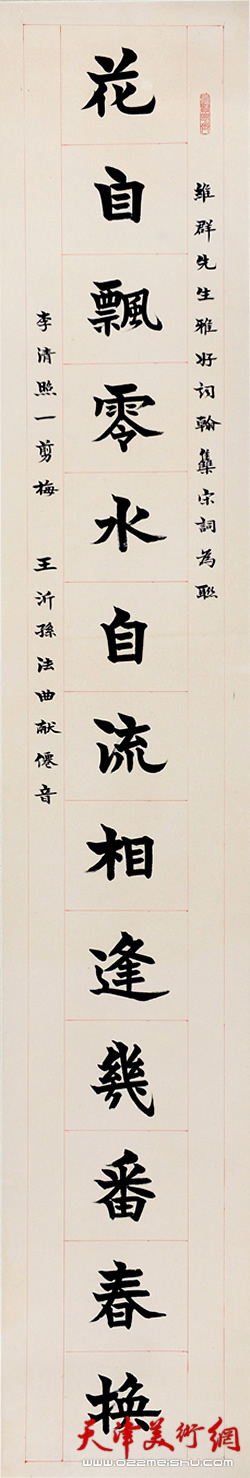 維群先生雅好詞翰集宋詞為聯
花自飄零水自流相逢幾番春換
李清照一剪梅 王沂孫法曲献僊音
天津美術網
www.022meishu.com